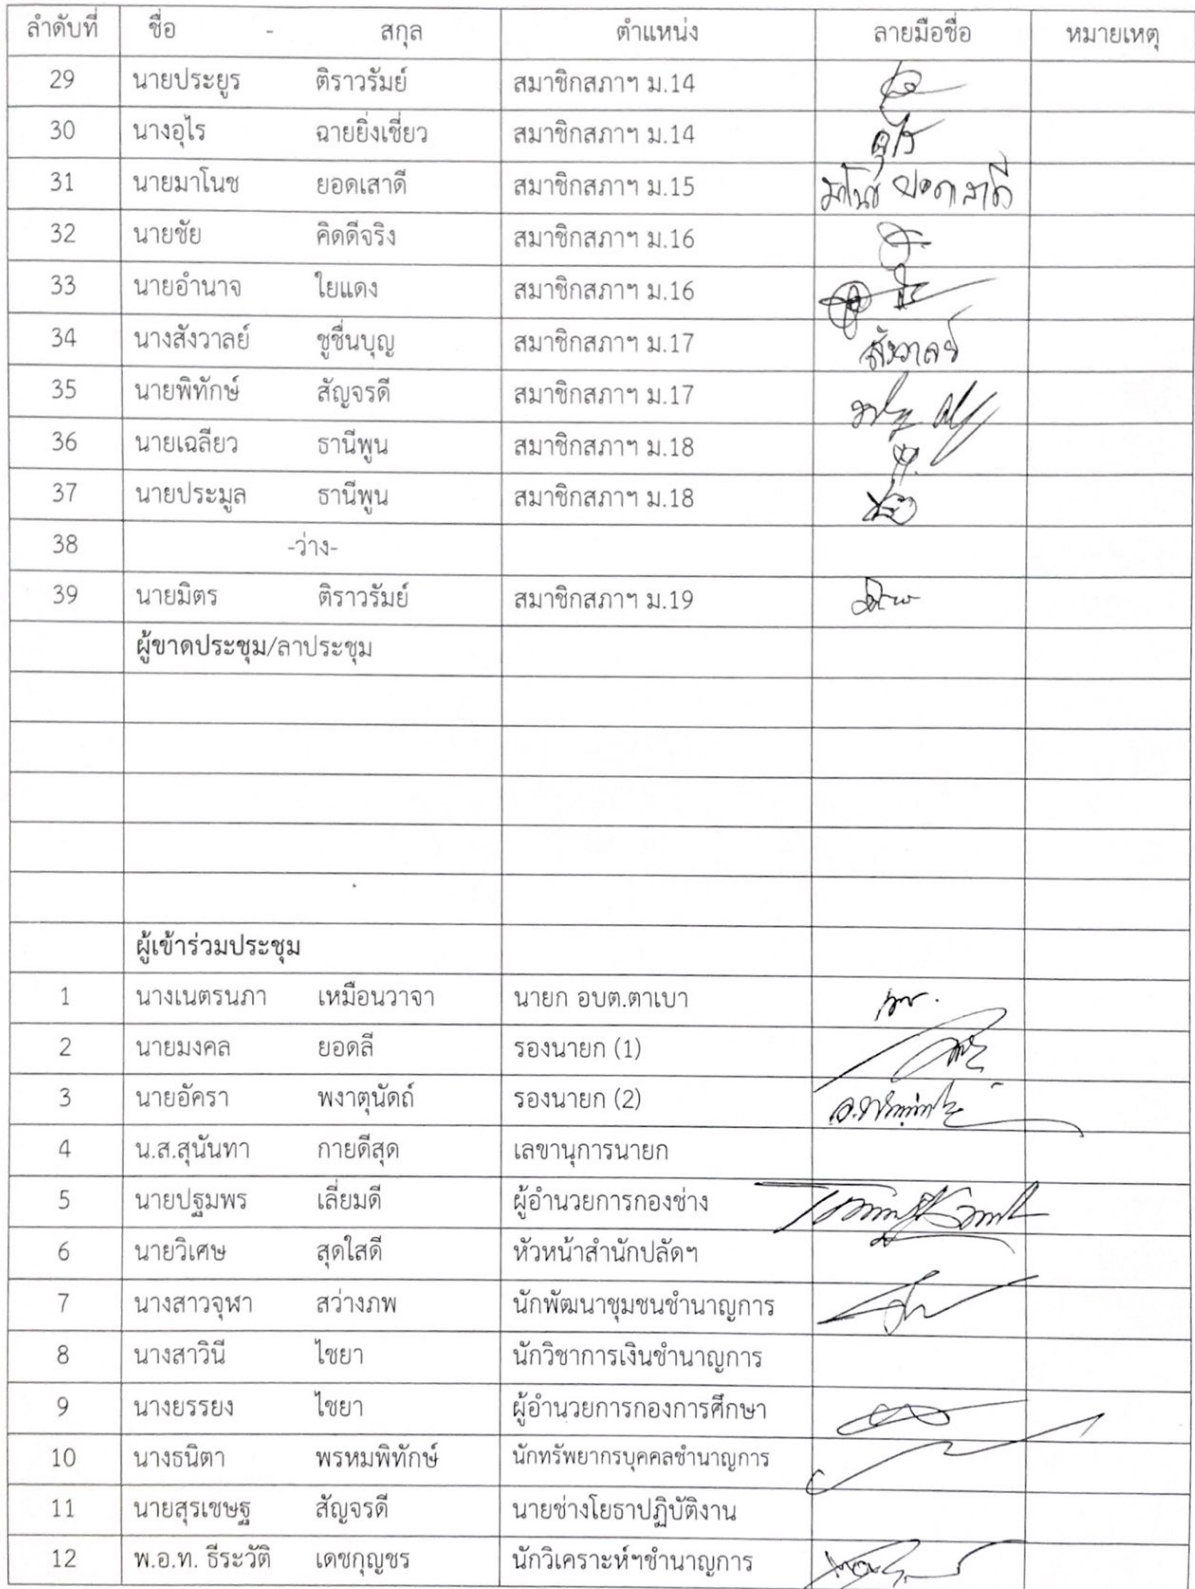 ลำดับที่ ชื่อ - สกุล ตำแหน่ง ลายมือชื่อ หมายเหตุ
29 นายประยูร ติราวรัมย์ สมาชิกสภาฯ ม.14
30 นางอุไร ฉายยิ่งเชี่ยว สมาชิกสภาฯ ม.14 อุไร
31 นายมาโนช ยอดเสาดี สมาชิกสภาฯ ม.15 มาโนช ยอดเสาดี
32 นายชัย คิดดีจริง สมาชิกสภาฯ ม.16
33 นายอำนาจ ใยแดง สมาชิกสภาฯ ม.16
34 นางสังวาลย์ ชูชื่นบุญ สมาชิกสภาฯ ม.17 สังวาลย์
35 นายพิทักษ์ สัญจรดี สมาชิกสภาฯ ม.17
36 นายเฉลียว ธานีพูน สมาชิกสภาฯ ม.18
37 นายประมูล ธานีพูน สมาชิกสภาฯ ม.18
38 -ว่าง-
39 นายมิตร ติราวรัมย์ สมาชิกสภาฯ ม.19
ผู้ขาดประชุม/ลาประชุม
ผู้เข้าร่วมประชุม
1 นางเนตรนภา เหมือนวาจา นายก อบต.ตาเบา
2 นายมงคล ยอดลี รองนายก (1)
3 นายอัครา พงาตุนัดถ์ รองนายก (2)
4 น.ส.สุนันทา กายดีสุด เลขานุการนายก
5 นายปฐมพร เลี่ยมดี ผู้อำนวยการกองช่าง
6 นายวิเศษ สุดใสดี หัวหน้าสำนักปลัดฯ
7 นางสาวจุฬา สว่างภพ นักพัฒนาชุมชนชำนาญการ
8 นางสาวินี ไชยา นักวิชาการเงินชำนาญการ
9 นางยรรยง ไชยา ผู้อำนวยการกองการศึกษา
10 นางธนิตา พรหมพิทักษ์ นักทรัพยากรบุคคลชำนาญการ
11 นายสุรเชษฐ สัญจรดี นายช่างโยธาปฏิบัติงาน
12 พ.อ.ท. ธีระวัติ เดชกุญชร นักวิเคราะห์ฯชำนาญการ